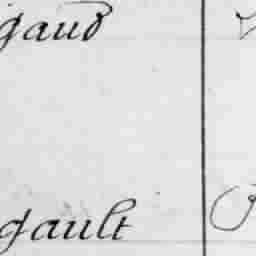 gaud
gault